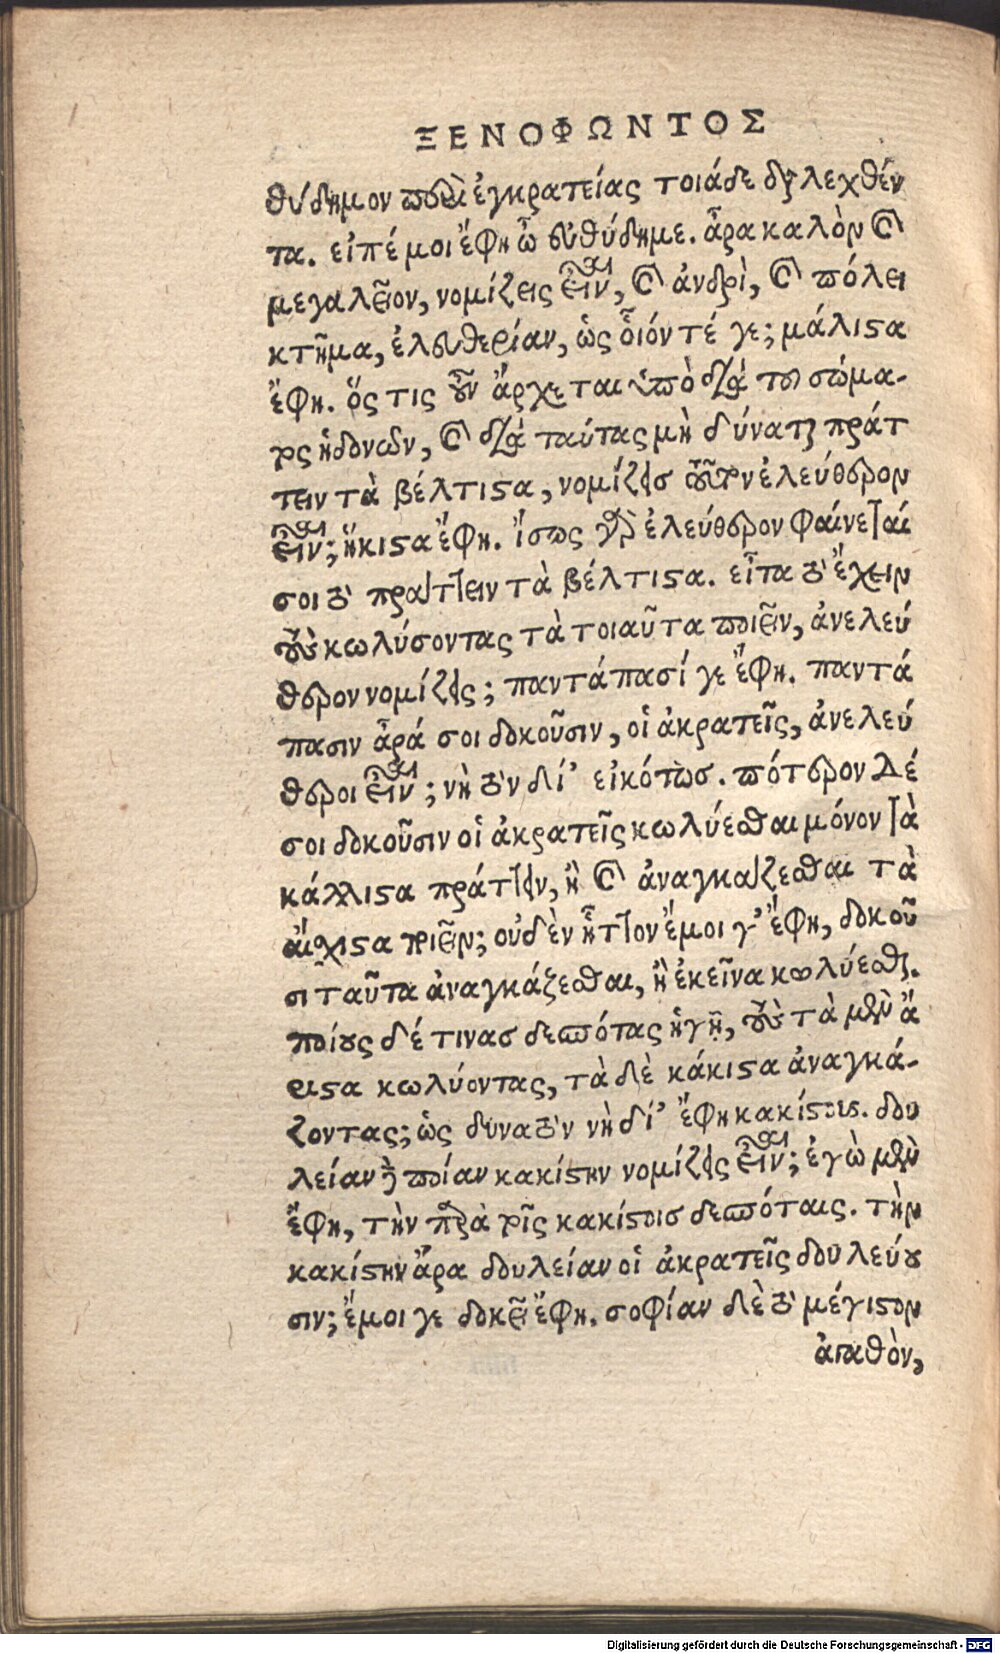 ΞΕΝΟΦΩΝΤΟΣ
θύδημον περὶ ἐγκρατείας τοιάδε διαλεχθέν
τα. εἰπέ μοι ἔφη ὦ εὐθύδημε. ἆρα καλὸν καὶ
μεγαλεῖον, νομίζεις εἶναι, καὶ ἀνδρὶ, καὶ πόλει
κτῆμα, ἐλευθερίαν, ὡς οἷόν τέ γε; μάλιστα
ἔφη. ὅς τις οὖν ἄρχεται ὑπὸ διὰ τοῦ σώμα-
τος ἡδονῶν, καὶ διὰ ταύτας μὴ δύναται πράτ
τειν τὰ βέλτιστα, νομίζεις τοῦτον ἐλεύθερον
εἶναι; ἥκιστα ἔφη. ἴσως γὰρ ἐλεύθερον φαίνεται
σοι τὸ πράττειν τὰ βέλτιστα. εἶτα τὸ ἔχειν
τοὺς κωλύσοντας τὰ τοιαῦτα ποιεῖν, ἀνελεύ
θερον νομίζεις; παντάπασί γε ἔφη. παντά
πασιν ἆρά σοι δοκοῦσιν, οἱ ἀκρατεῖς, ἀνελεύ
θεροι εἶναι; νὴ τὸν δί' εἰκότως. πότερον δέ
σοι δοκοῦσιν οἱ ἀκρατεῖς κωλύεσθαι μόνον τὰ
κάλλιστα πράττειν, ἢ καὶ ἀναγκάζεσθαι τὰ
αἴσχιστα ποιεῖν; οὐδὲν ἧττον ἔμοι γ' ἔφη, δοκοῦ
σι ταῦτα ἀναγκάζεσθαι, ἢ ἐκεῖνα κωλύεσθαι.
ποίους δέ τινας δεσπότας ἡγῇ, τοὺς τὰ μὲν ἄ
ριστα κωλύοντας, τὰ δὲ κάκιστα ἀναγκά-
ζοντας; ὡς δυνατὸν νὴ δί' ἔφη κακίστους. δου
λείαν δὲ ποίαν κακίστην νομίζεις εἶναι; ἐγὼ μὲν
ἔφη, τὴν παρὰ τοῖς κακίστοις δεσπόταις. τὴν
κακίστην ἄρα δουλείαν οἱ ἀκρατεῖς δουλεύου
σιν; ἔμοι γε δοκεῖ ἔφη. σοφίαν δὲ τὸ μέγιστον
ἀγαθὸν,
Digitalisierung gefördert durch die Deutsche Forschungsgemeinschaft - DFG